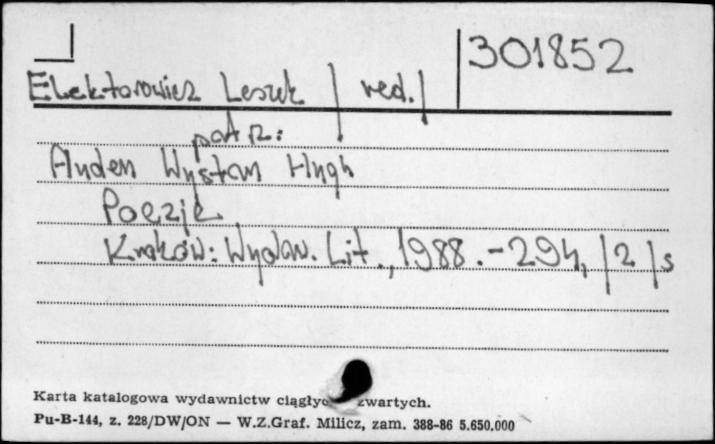 301852
Elektorowicz Leszek /red./
patrz:
Auden Wystan Hugh
Poezje
Kraków: Wydaw. Lit., 1988. - 294, /2/ s
Karta katalogowa wydawnictw zwartych.
Pu-B-144, z. 228/DW/ON — W.Z.Graf. Milicz, zam. 388-86 5.650.000